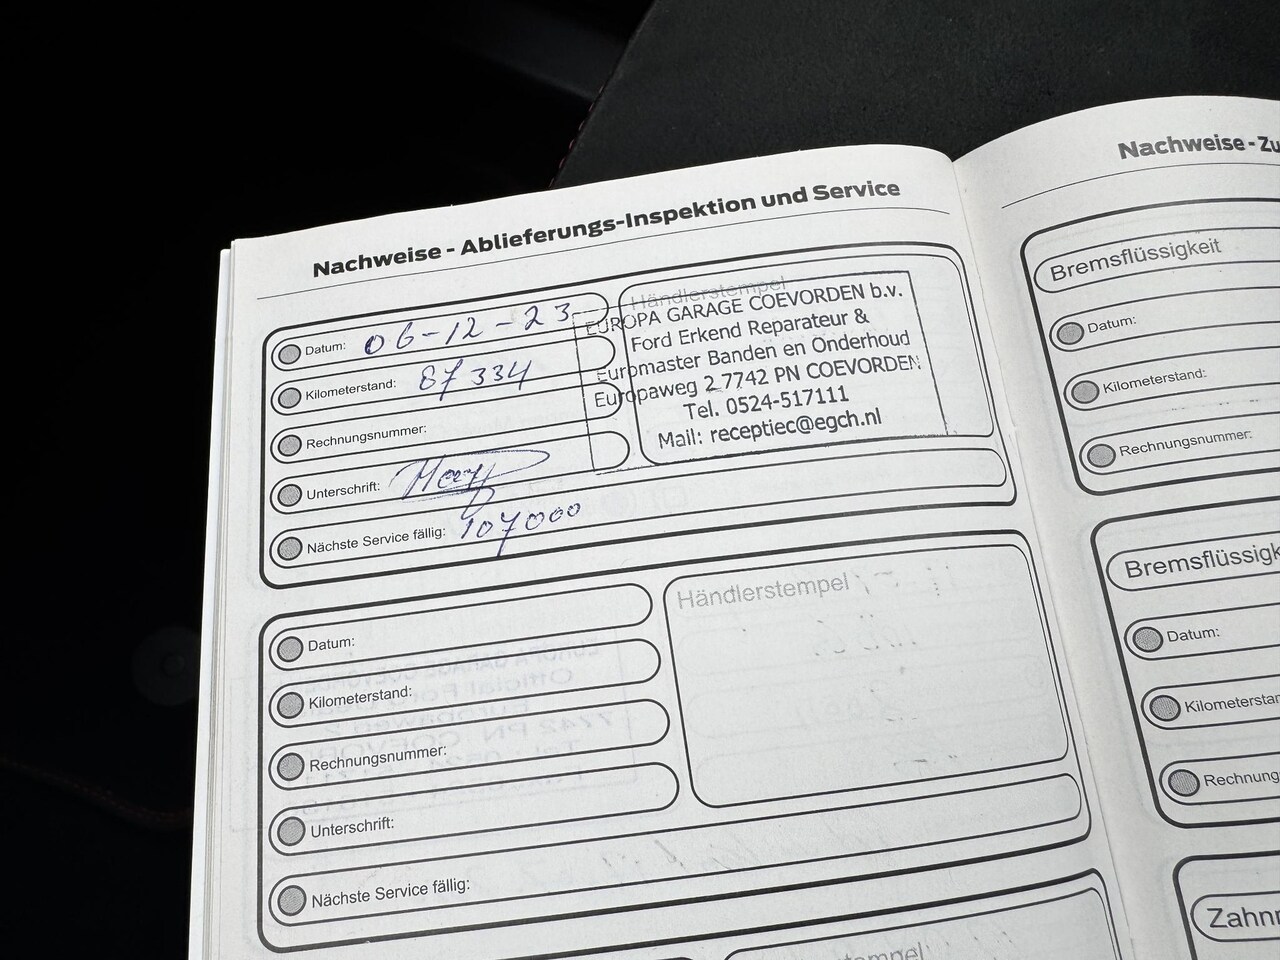 Nachweise - Ablieferungs-Inspektion und Service
Datum: 06-12-23
Kilometerstand: 87334
Rechnungsnummer:
Unterschrift:
Nächste Service fällig: 107000
Händlerstempel
EUROPA GARAGE COEVORDEN b.v.
Ford Erkend Reparateur &
Euromaster Banden en Onderhoud
Europaweg 2 7742 PN COEVORDEN
Tel. 0524-517111
Mail: receptiec@egch.nl
Datum:
Kilometerstand:
Rechnungsnummer:
Unterschrift:
Nächste Service fällig:
Händlerstempel
Nachweise - Zu
Bremsflüssigkeit
Datum:
Kilometerstand:
Rechnungsnummer:
Bremsflüssigk
Datum:
Kilometerstan
Rechnung
Zahnr